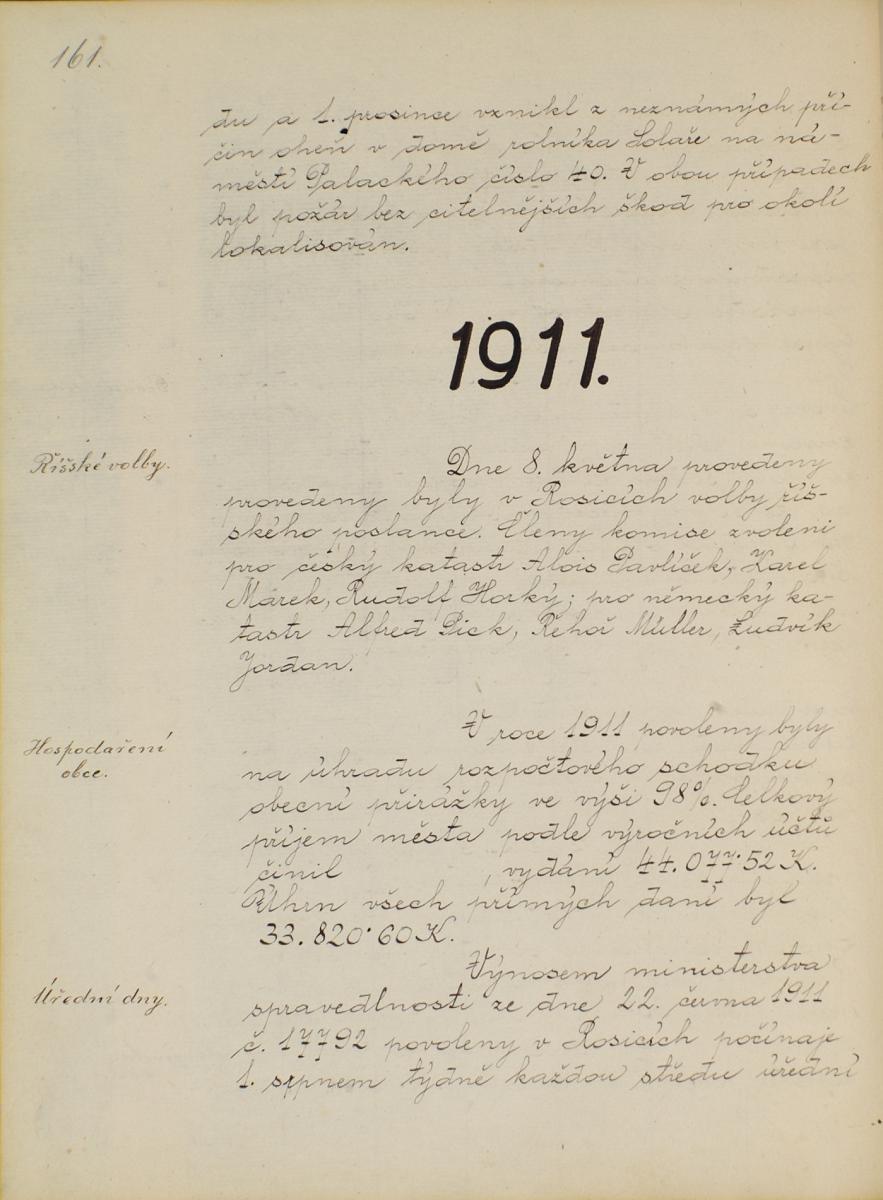 161.
du a 1. prosince vznikl z neznámých pří-
čin oheň v domě rolníka Kolaře na ná-
městí Palackého číslo 40. V obou případech
byl požár bez citelnějších škod pro okolí
lokalisován.
1911.
Říšské volby.
Dne 8. května provedeny
provedeny byly v Rosicích volby říš-
ského poslance. Členy komise zvoleni
pro český katastr Alois Pavlíček, Karel
Márek, Rudolf Horký; pro německý ka-
tastr Alfred Pick, Řehoř Müller, Ludvík
Jordan.
Hospodaření
obce.
V roce 1911 povoleny byly
na úhradu rozpočtového schodku
obecní přirážky ve výši 98%. Celkový
příjem města podle výročních účtů
činil , vydání 44.077·52 K.
Úhrn všech přímých daní byl
33.820·60 K.
Úřední dny.
Výnosem ministerstva
spravedlnosti ze dne 22. června 1911
č. 17792 povoleny v Rosicích počínaje
1. srpnem týdně každou středu úřední